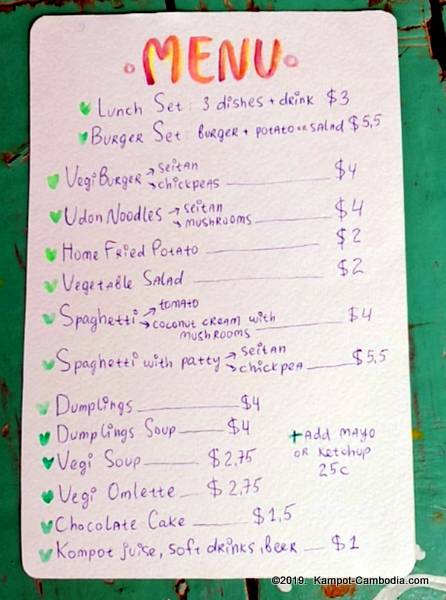 MENU
Lunch Set: 3 dishes + drink $3
Burger Set: burger + potato or salad $5,5
Vegi Burger → seitan
→ chickpeas $4
Udon Noodles → seitan
→ mushrooms $4
Home Fried Potato $2
Vegetable Salad $2
Spaghetti → tomato
→ coconut cream with
mushrooms $4
Spaghetti with patty → seitan
→ chickpea $5,5
Dumplings $4
Dumplings Soup $4
Vegi Soup $2,75
Vegi Omlette $2,75
Chocolate Cake $1,5
Kompot juise, soft drinks, beer $1
+ Add mayo
or ketchup
25c
©2019. Kampot-Cambodia.com